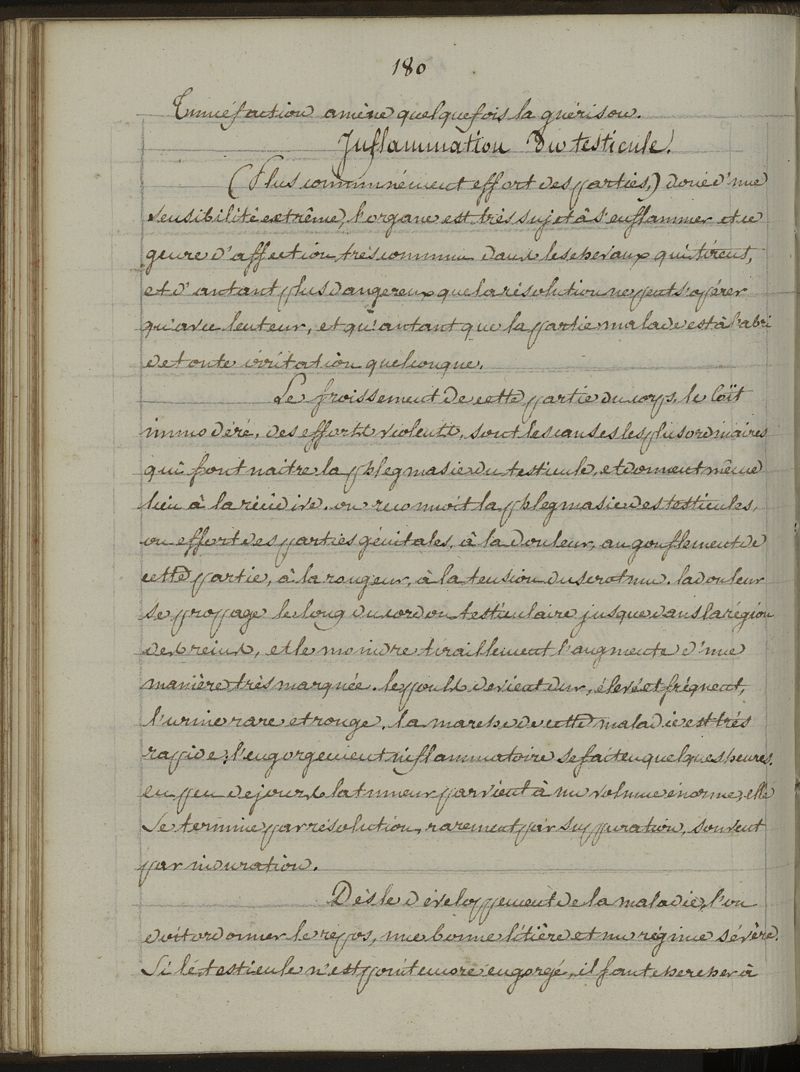 180
Tuméfaction amène quelquefois la guérison.
Inflammation du testicule.
(Plus communément effort des parties,) doué d'une
sensibilité extrême, l'organe est très sujet à s'enflammer et ce
genre d'affection, très commun dans les chevaux qui tirent,
et d'autant plus dangereux que la résolution ne peut s'opérer
qu'avec lenteur, et qu'autant que la partie malade est à l'abri
de toute irritation quelconque.
Le froissement de cette partie du corps, le Coït
immodéré, des efforts violents, sont les causes les plus ordinaires
qui font naitre la phlegmasie du testicule, et donnent même
lieu à la récidive. on reconnoit la phlegmasie des testicules,
ou effort des parties génitales, à la douleur, au gonflement de
cette partie, à la rougeur, à la tension du scrotum, la douleur
se propage le long du cordon testiculaire jusque dans la région
des reins, et le moindre tiraillement l'augmente d'une
manière très marquée. le pouls devient dur, élevé et fréquent,
l'urine rare et rouge. la marche de cette maladie est très
rapide; l'engorgement inflammatoire se fait en quelques heures.
en peu de jours la tumeur parvient à un volume énorme, elle
se termine par résolution, rarement par suppuration, souvent
par induration.
Dès le développement de la maladie, l'on
doit ordonner le repos, une bonne litière et un régime sévère.
Si le testicule n'est point encore engorgé, il faut chercher à